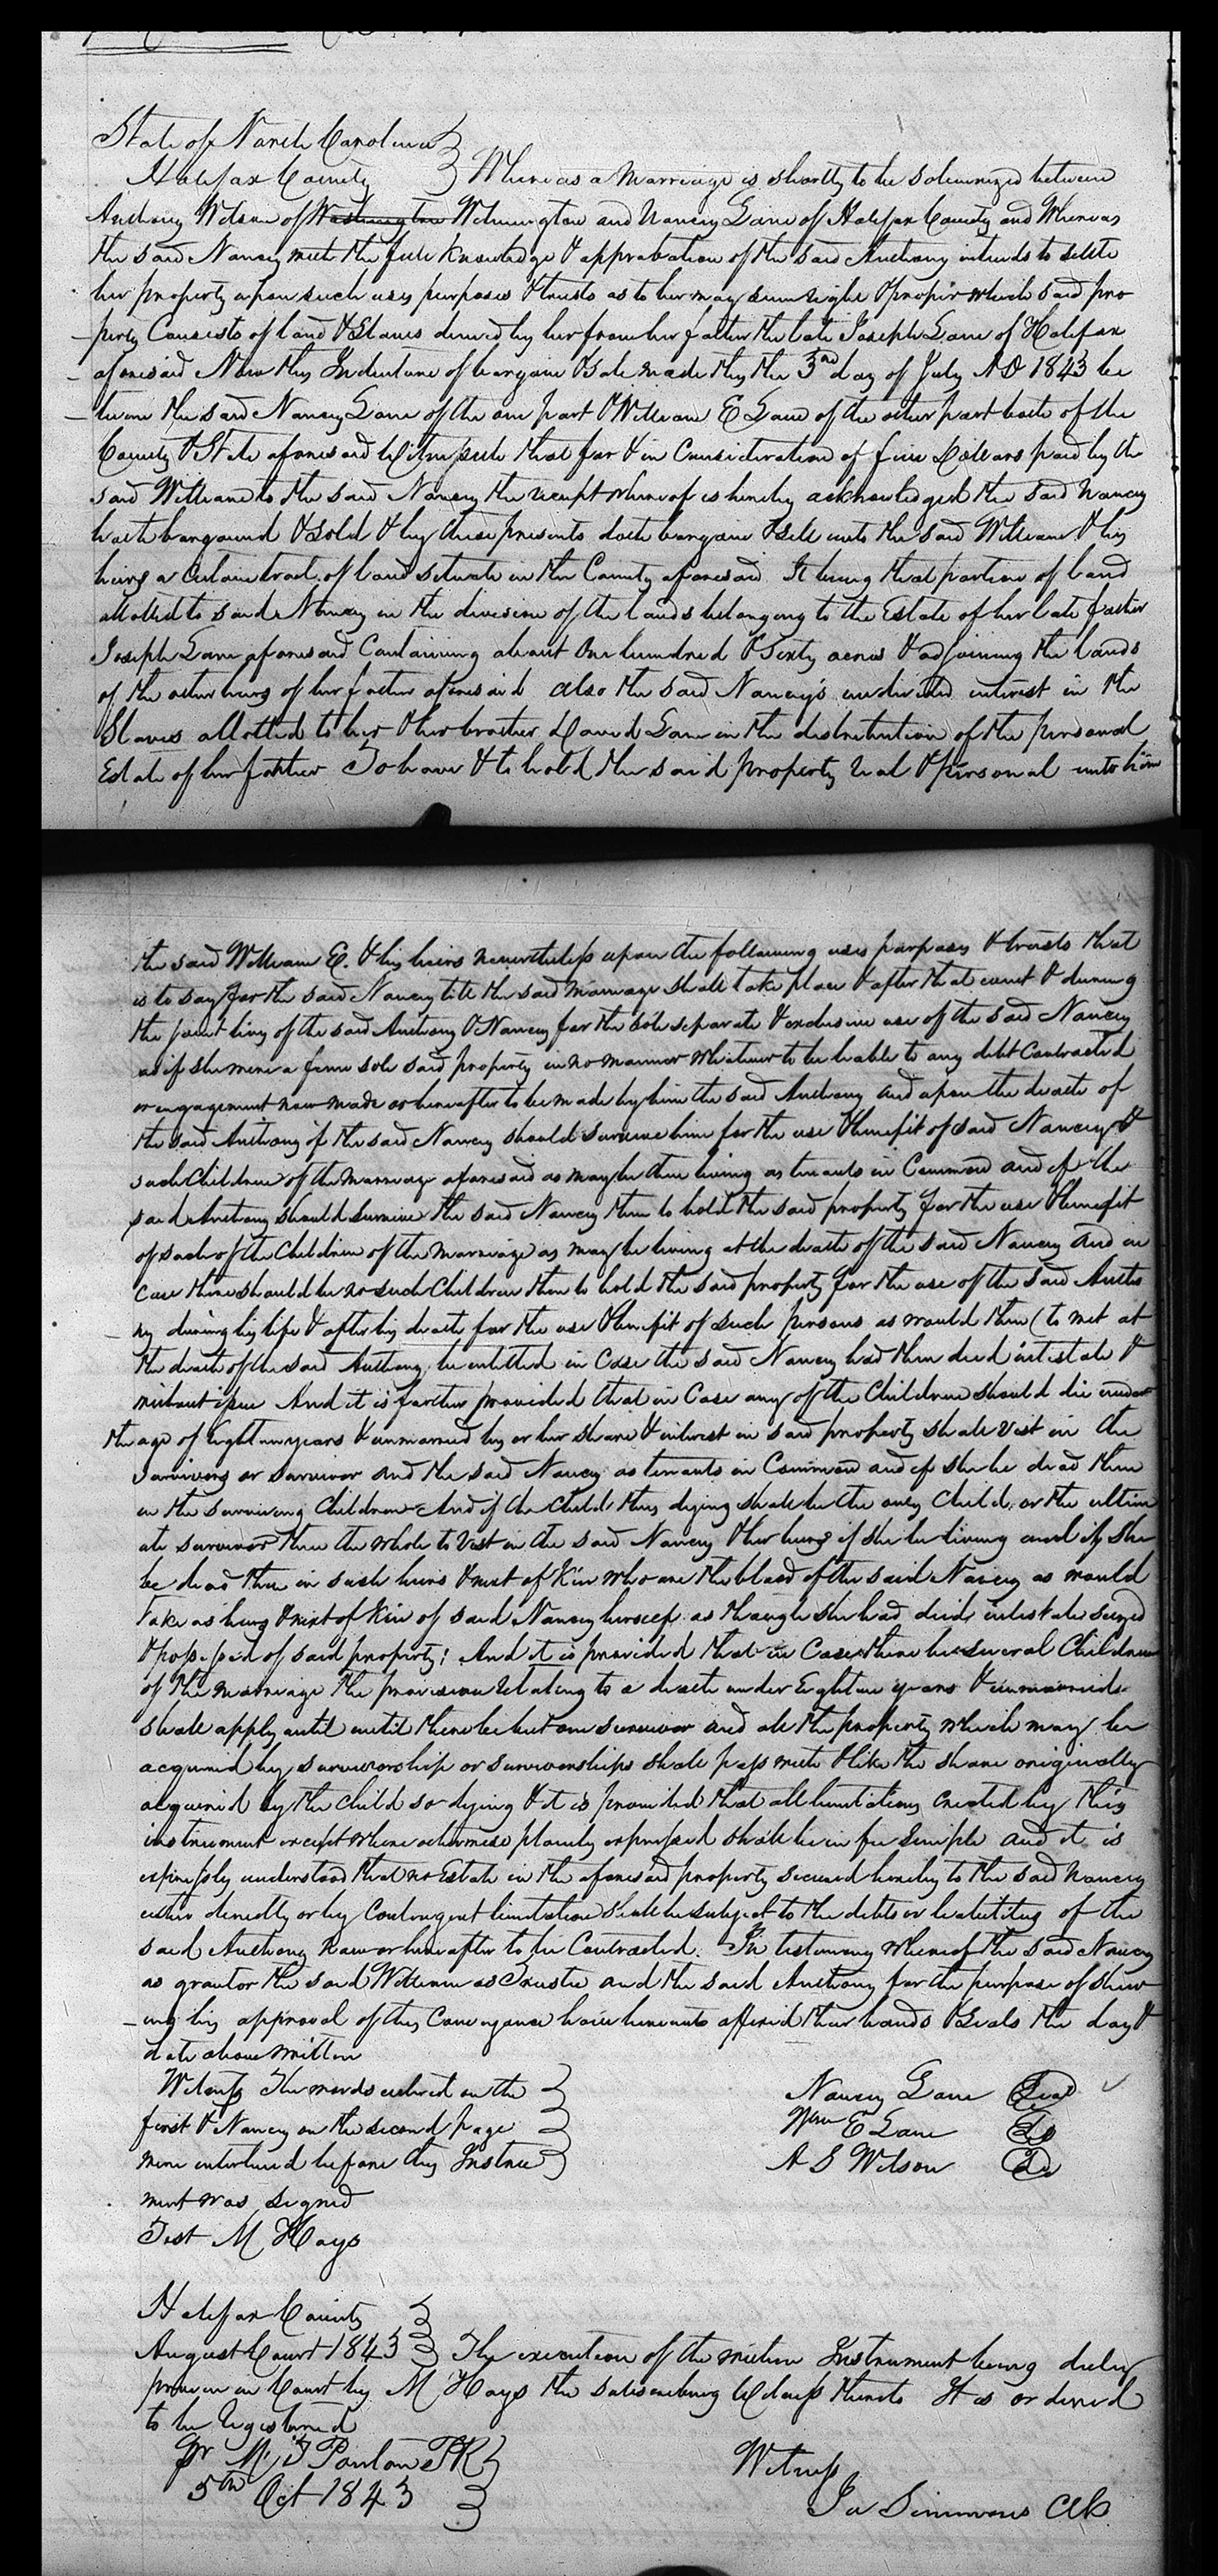 State of North Carolina }
Halifax County } Whereas a Marriage is shortly to be solemnized between
Anthony Wilson of Washington Wilmington and Nancy Lane of Halifax County and Whereas
the said Nancy with the full knowledge & approbation of the said Anthony intends to settle
her property upon such uses purposes & trusts as to her may seem right & proper which said pro
perty Consists of land & Slaves derived by her from her father the late Joseph Lane of Halifax
aforesaid Now this Indenture of bargain & sale made this the 3rd day of July AD 1843 be
tween the said Nancy Lane of the one part & William E Lane of the other part both of the
County & State aforesaid Witnesseth that for & in Consideration of five Dollars paid by the
said William to the said Nancy the receipt whereof is hereby acknowledged the said Nancy
hath bargained & sold & by these presents doth bargain & sell unto the said William & his
heirs a Certain tract of land situate in the County aforesaid It being that portion of land
allotted to said Nancy in the division of the lands belonging to the Estate of her late father
Joseph Lane aforesaid Containing about One hundred & Sixty acres & adjoining the lands
of the other heirs of her father aforesaid also the said Nancy's undivided interest in the
Slaves allotted to her & her brother David Lane in the distribution of the personal
Estate of her father To have & to hold the said property real & personal unto him
the said William E. & his heirs nevertheless upon the following uses purposes & trusts that
is to say for the said Nancy till the said marriage shall take place & after that event & during
the joint living of the said Anthony & Nancy for the sole separate & exclusive use of the said Nancy
as if she were a feme sole said property in no manner whatever to be liable to any debt Contracted
or engagement now made or hereafter to be made by him the said Anthony and upon the death of
the said Anthony if the said Nancy should survive him for the use & benefit of said Nancy &
such Children of the marriage aforesaid as may be then living as tenants in Common and if the
said Anthony should survive the said Nancy then to hold the said property for the use & benefit
of such of the Children of the marriage as may be living at the death of the said Nancy and in
Case there should be no such Children then to hold the said property for the use of the said Antho
ny during his life & after his death for the use & benefit of such persons as would then (to wit at
the death of the said Anthony be entitled in Case the said Nancy had then died intestate &
without issue And it is further provided that in Case any of the Children should die under
the age of Eighteen years & unmarried his or her share & interest in said property shall vest in the
survivors or survivor and the said Nancy as tenants in Common and if she be dead then
in the surviving Children And if the Child thus dying shall be the only Child, or the ultim
ate survivor then the whole to vest in the said Nancy & her heirs if she be living and if she
be dead then in such heirs & next of Kin who are the blood of the said Nancy as would
take as heirs & next of kin of said Nancy herself as though she had died intestate seized
& possessed of said property; And it is provided that in Case there be several Children
of the marriage the provision relating to a death under Eighteen years & unmarried
shall apply until until there be but one survivor and all the property which may be
acquired by survivorship or survivorships shall pass with & like the share originally
acquired by the child so dying & it is provided that all limitations created by this
instrument except where otherwise plainly expressed shall be in fee Simple and it is
expressly understood that no Estate in the aforesaid property secured hereby to the said Nancy
either directly or by Contingent limitation shall be subject to the debts or liabilities of the
said Anthony now or hereafter to be Contracted. In testimony whereof the said Nancy
as grantor the said William as Trustee and the said Anthony for the purpose of shew
ing his approval of this Conveyance have hereunto affixed their hands & Seals the day &
date above written
Witness The words entered on the } Nancy Lane Seal
first & Nancy on the second page } Wm E Lane Seal
were interlined before this Instru } A S Wilson Seal
ment was signed
Test M Hays
Halifax County }
August Court 1843 } The execution of the within Instrument being duly
proven in Court by M Hays the subscribing Witness thereto It is ordered
to be Registered
Pr M. T Ponton PR } Witness
5th Oct 1843 } Jn Simmons Clk